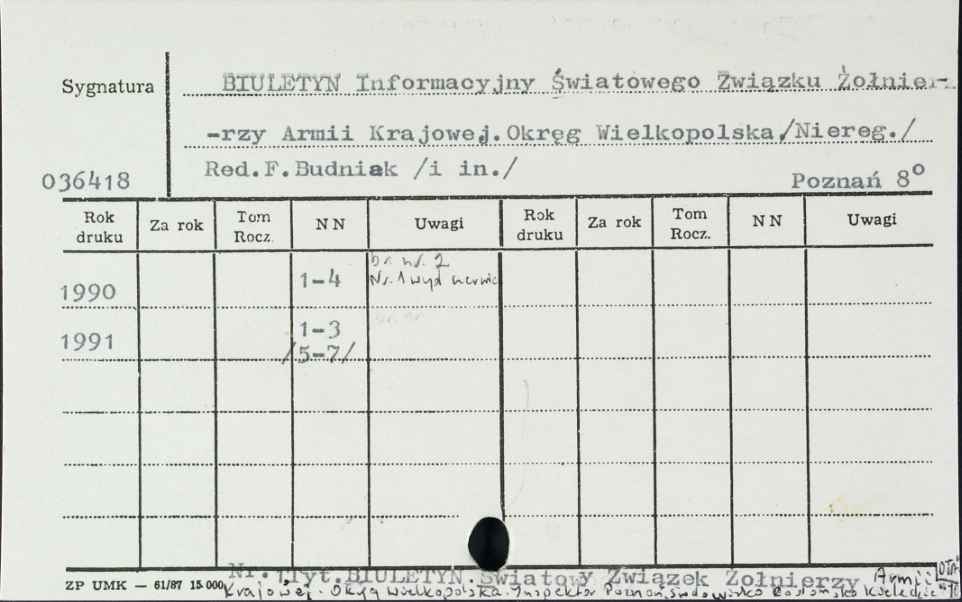 Sygnatura
BIULETYN Informacyjny Światowego Związku Żołnier-
-rzy Armii Krajowej.Okręg Wielkopolska/Niereg./
Red.F.Budniak /i in./
036418
Poznań 8°
Rok druku Za rok Tom Rocz. NN Uwagi Rok druku Za rok Tom Rocz. NN Uwagi
br. nr. 2
1990 1-4 Nr. 1 wyd
1991 1-3
/5-7/
Nr.1Tyt.BIULETYN.Światowy Związek Żołnierzy Armii
Krajowej. Okręg Wielkopolska. Inspektor Poznań, Środowisko
ZP UMK — 61/87 15.000